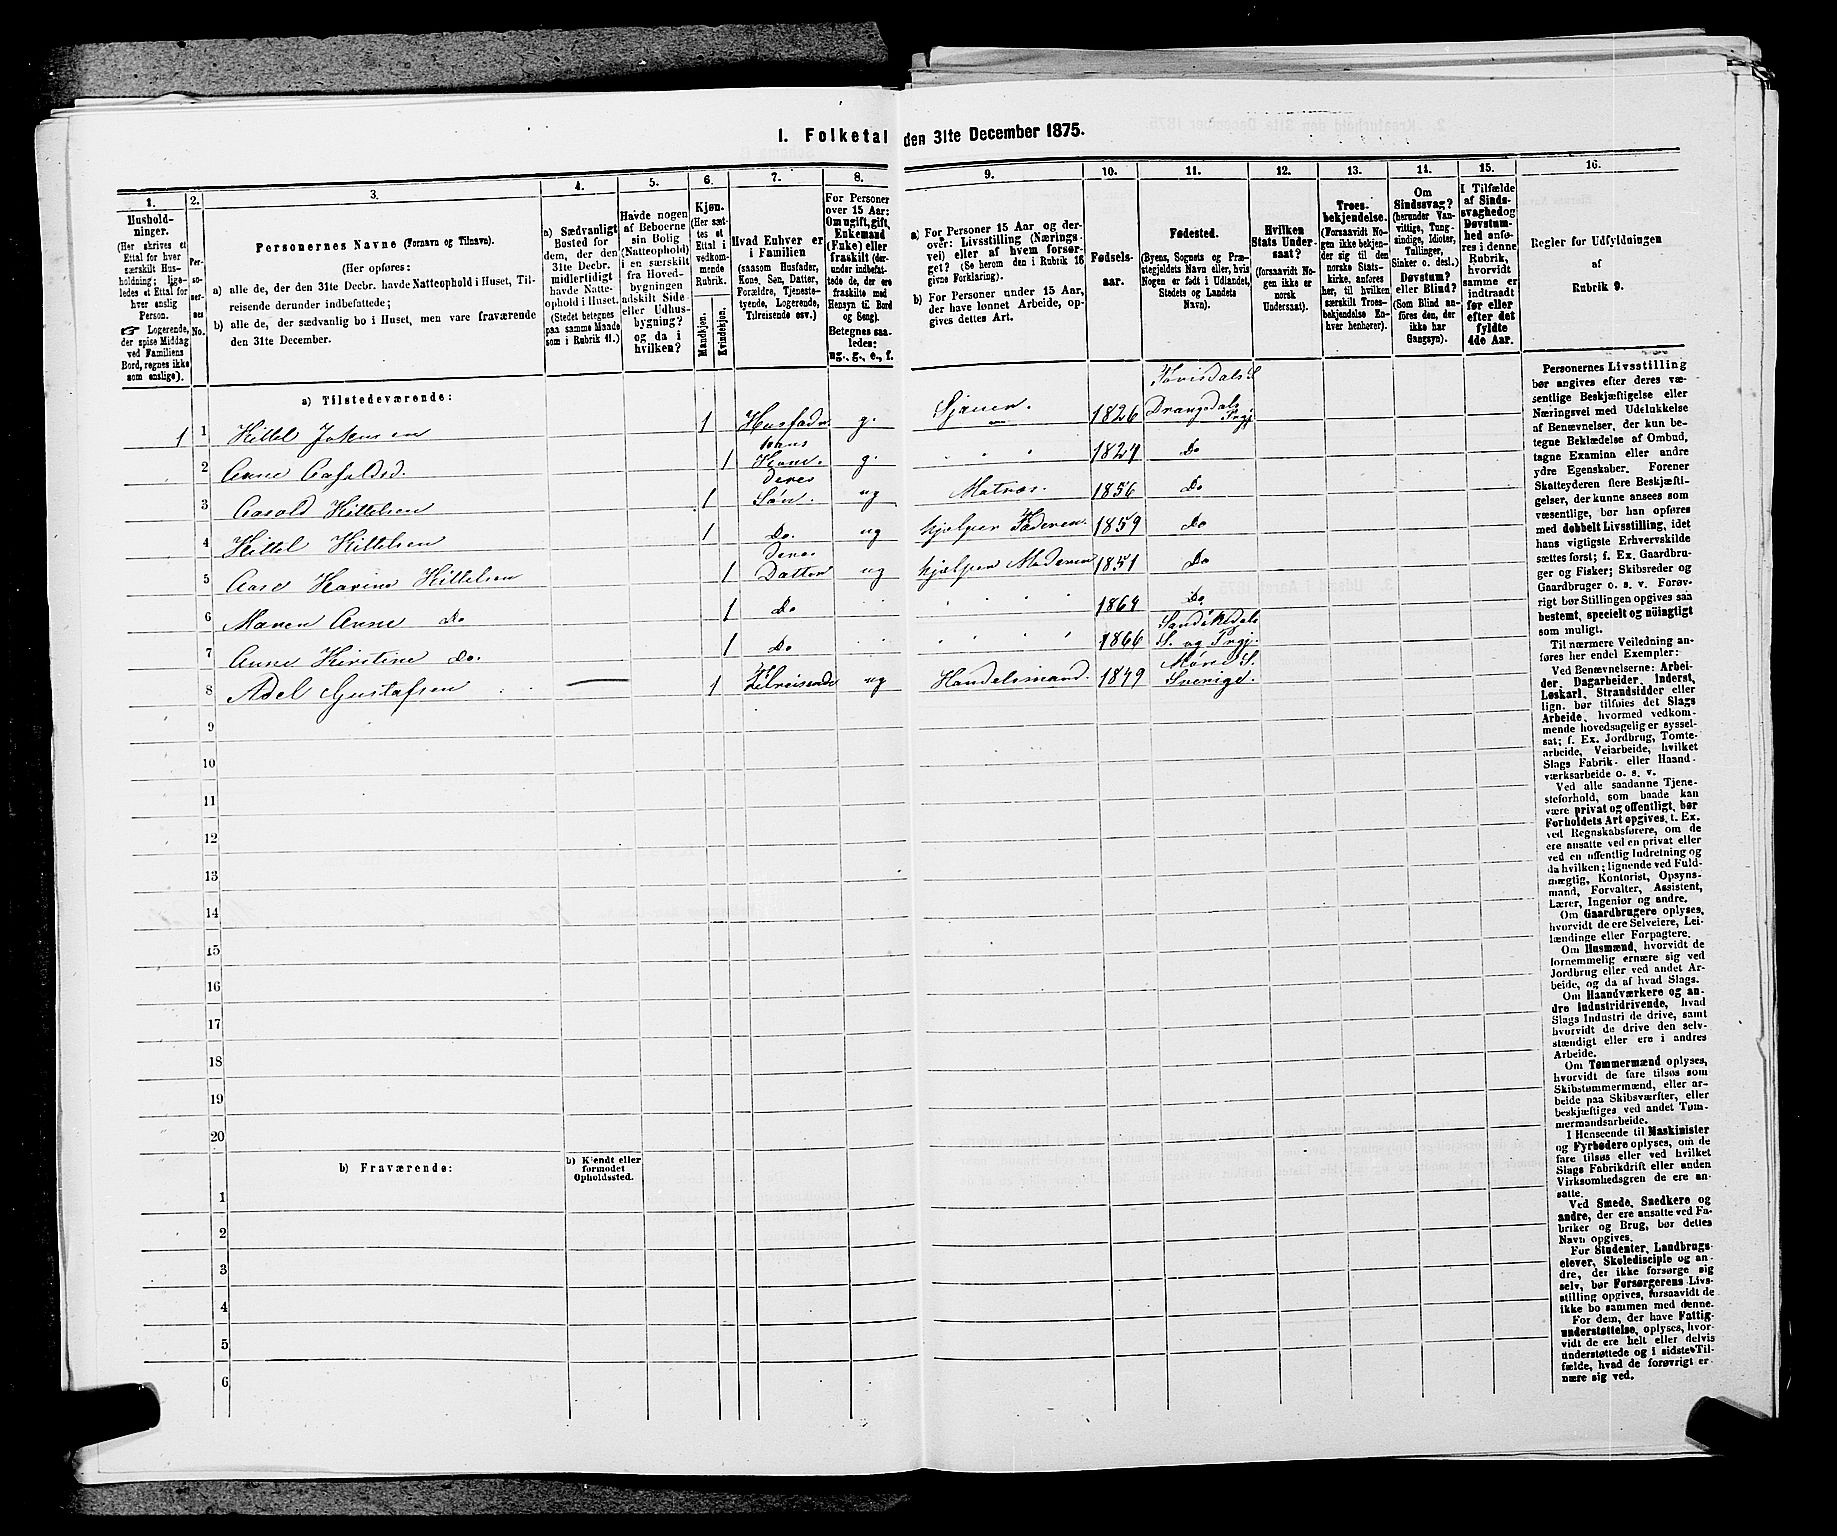 I. Folketal den 31te December 1875.
1.
Hushold-
ninger.
(Her skrives et
Ettal for hver
særskilt Hus-
holdning; lige-
ledes et Ettal for
hver enslig
Person.
☞ Logerende,
der spise Middag
ved Familiens
Bord, regnes ikke
som enslige).
2.
Per-
so-
ner-
nes
No.
3.
Personernes Navne (Fornavn og Tilnavn).
(Her opføres:
a) alle de, der den 31te Decbr. havde Natteophold i Huset, Til-
reisende derunder indbefattede;
b) alle de, der sædvanlig bo i Huset, men vare fraværende
den 31te December.
4.
a) Sædvanligt
Bosted for
dem, der den
31te Decbr.
midlertidigt
havde Natte-
ophold i Huset.
(Stedet betegnes
paa samme Maade
som i Rubrik 11.)
5.
Havde nogen
af Beboerne
sin Bolig
(Natteophold)
i en særskilt
fra Hoved-
bygningen
adskilt Side-
eller Udhus-
bygning?
og da i
hvilken?
6.
Kjøn.
(Her sæt-
tes et
Ettal i
vedkom-
mende
Rubrik.
Mandkjøn.
Kvindekjøn.
7.
Hvad Enhver er
i Familien
(saasom Husfader,
Kone, Søn, Datter,
Forældre, Tjeneste-
tyende, Logerende,
Tilreisende osv.)
8.
For Personer
over 15 Aar:
Om ugift, gift,
Enkemand
(Enke) eller
fraskilt (der-
under indbefat-
tede de, der ere
fraskilte med
Hensyn til Bord
og Seng).
Betegnes saa-
ledes:
ug., g., e., f.
9.
a) For Personer 15 Aar og der-
over: Livsstilling (Nærings-
vei) eller af hvem forsør-
get? (Se herom den i Rubrik 16
givne Forklaring).
b) For Personer under 15 Aar,
der have lønnet Arbeide, op-
gives dettes Art.
10.
Fødsels-
aar.
11.
Fødested.
(Byens, Sognets og Præ-
stegjeldets Navn eller, hvis
Nogen er født i Udlandet,
Stedets og Landets
Navn).
12.
Hvilken
Stats Under-
saat?
(forsaavidt No-
gen ikke er
norsk
Undersaat).
13.
Troes-
bekjendelse.
(Forsaavidt No-
gen ikke bekjen-
der sig til den
norske Stats-
kirke, anføres
her, til hvilken
særskilt Troes-
bekjendelse En-
hver henhører).
14.
Om
Sindssvag?
(herunder Van-
vittige, Tung-
sindige, Idioter,
Tullinger,
Sinker o. desl.)
Døvstum?
eller Blind?
(Som Blind an-
føres den, der
ikke har
Gangsyn).
15.
I Tilfælde
af Sinds-
svaghed og
Døvstum-
hed anfø-
res i denne
Rubrik,
hvorvidt
samme er
indtraadt
før eller
efter det
fyldte
4de Aar.
16.
Regler for Udfyldningen
af
Rubrik 9.
a) Tilstedeværende:
Tovisdals S
1 1 Kittel Jakusen 1 Husfader g. Sjauer. 1826 Drangedals Prgj
2 Anne Aasoldsd. 1 hans Kone. g. " " " 1827 Do
3 Aasold Kittelsen 1 deres Søn. ug Matros. 1856 Do
4 Kittel Kittelsen 1 Do. ug hjelper Faderen. 1859 Do
5 Aase Karine Kittelsen 1 Deres Datter ug hjelper Moderen 1851 Do
6 Maren Anne Do 1 Do " " " " 1864 Do
7 Anne Kirstine Do. 1 Do " " " " 1866 Sandökedals S. og Prgj.
8 Adel Gustafsen 1 Tilreisende ug Handelsmand. 1849 S. Sverige.
9
10
11
12
13
14
15
16
17
18
19
20
b) Fraværende:
b) Kjendt eller
formodet
Opholdssted.
1
2
3
4
5
6
Personernes Livsstilling
bør angives efter deres væ-
sentlige Beskjæftigelse eller
Næringsvei med Udelukkelse
af Benævnelser, der kun be-
tegne Beklædelse af Ombud,
tagne Examina eller andre
ydre Egenskaber. Forener
Skatteyderen flere Beskjæfti-
gelser, der kunne ansees som
væsentlige, bør han opføres
med dobbelt Livsstilling, idet
hans vigtigste Erhvervskilde
sættes først; f. Ex. Gaardbru-
ger og Fisker; Skibsreder og
Gaardbruger o. s. v. Forøv-
rigt bør Stillingen opgives saa
bestemt, specielt og nöiagtigt
som muligt.
Til nærmere Veiledning an-
føres her endel Exempler:
Ved Benævnelserne: Arbei-
der, Dagarbeider, Inderst,
Løskarl, Strandsidder eller
lign. bør tilføies det Slags
Arbeide, hvormed vedkom-
mende hovedsagelig er syssel-
sat; f. Ex. Jordbrug, Tomte-
arbeide, Veiarbeide, hvilket
Slags Fabrik- eller Haand-
værksarbeide o. s. v.
Ved alle saadanne Tjene-
steforhold, som baade kan
være privat og offentligt, bør
Forholdets Art opgives, t. Ex.
ved Regnskabsførere, om de
ere ansatte ved en privat eller
ved en offentlig Indretning og
da hvilken; lignende ved Fuld-
mægtig, Kontorist, Opsyns-
mand, Forvalter, Assistent,
Lærer, Ingeniør og andre.
Om Gaardbrugere oplyses,
hvorvidt de ere Selveiere, Lei-
lændinge eller Forpagtere.
Om Husmænd, hvorvidt de
fornemmelig ernære sig ved
Jordbrug eller ved andet Ar-
beide, og da af hvad Slags.
Om Haandværkere og an-
dre industridrivende, hvad
Slags Industri de drive, samt
hvorvidt de drive den selv-
stændigt eller ere i andres
Arbeide.
Om Tømmermænd oplyses,
hvorvidt de fare tilsøs som
Skibstømmermænd, eller ar-
beide paa Skibsværfter, eller
beskjæftiges ved andet Tøm-
mermandsarbeide.
I Henseende til Maskinister
og Fyrbødere oplyses, om de
fare tilsøs eller ved hvilket
Slags Fabrikdrift eller anden
Virksomhedsgren de ere an-
satte.
Ved Smede, Snedkere og
andre, der ere ansatte ved Fa-
briker og Brug, bør dettes
Navn opgives.
For Studenter, Landbrugs-
elever, Skoledisciple og an-
dre, der ikke forsørge sig
selv, bør Forsørgerens Livs-
stilling opgives, forsaavidt de
ikke bo sammen med denne.
For dem, der have Fattig-
understøttelse, oplyses, hvor-
vidt de ere helt eller delvis
understøttede og i sidste Til-
fælde, hvad de forøvrigt er-
nære sig ved.